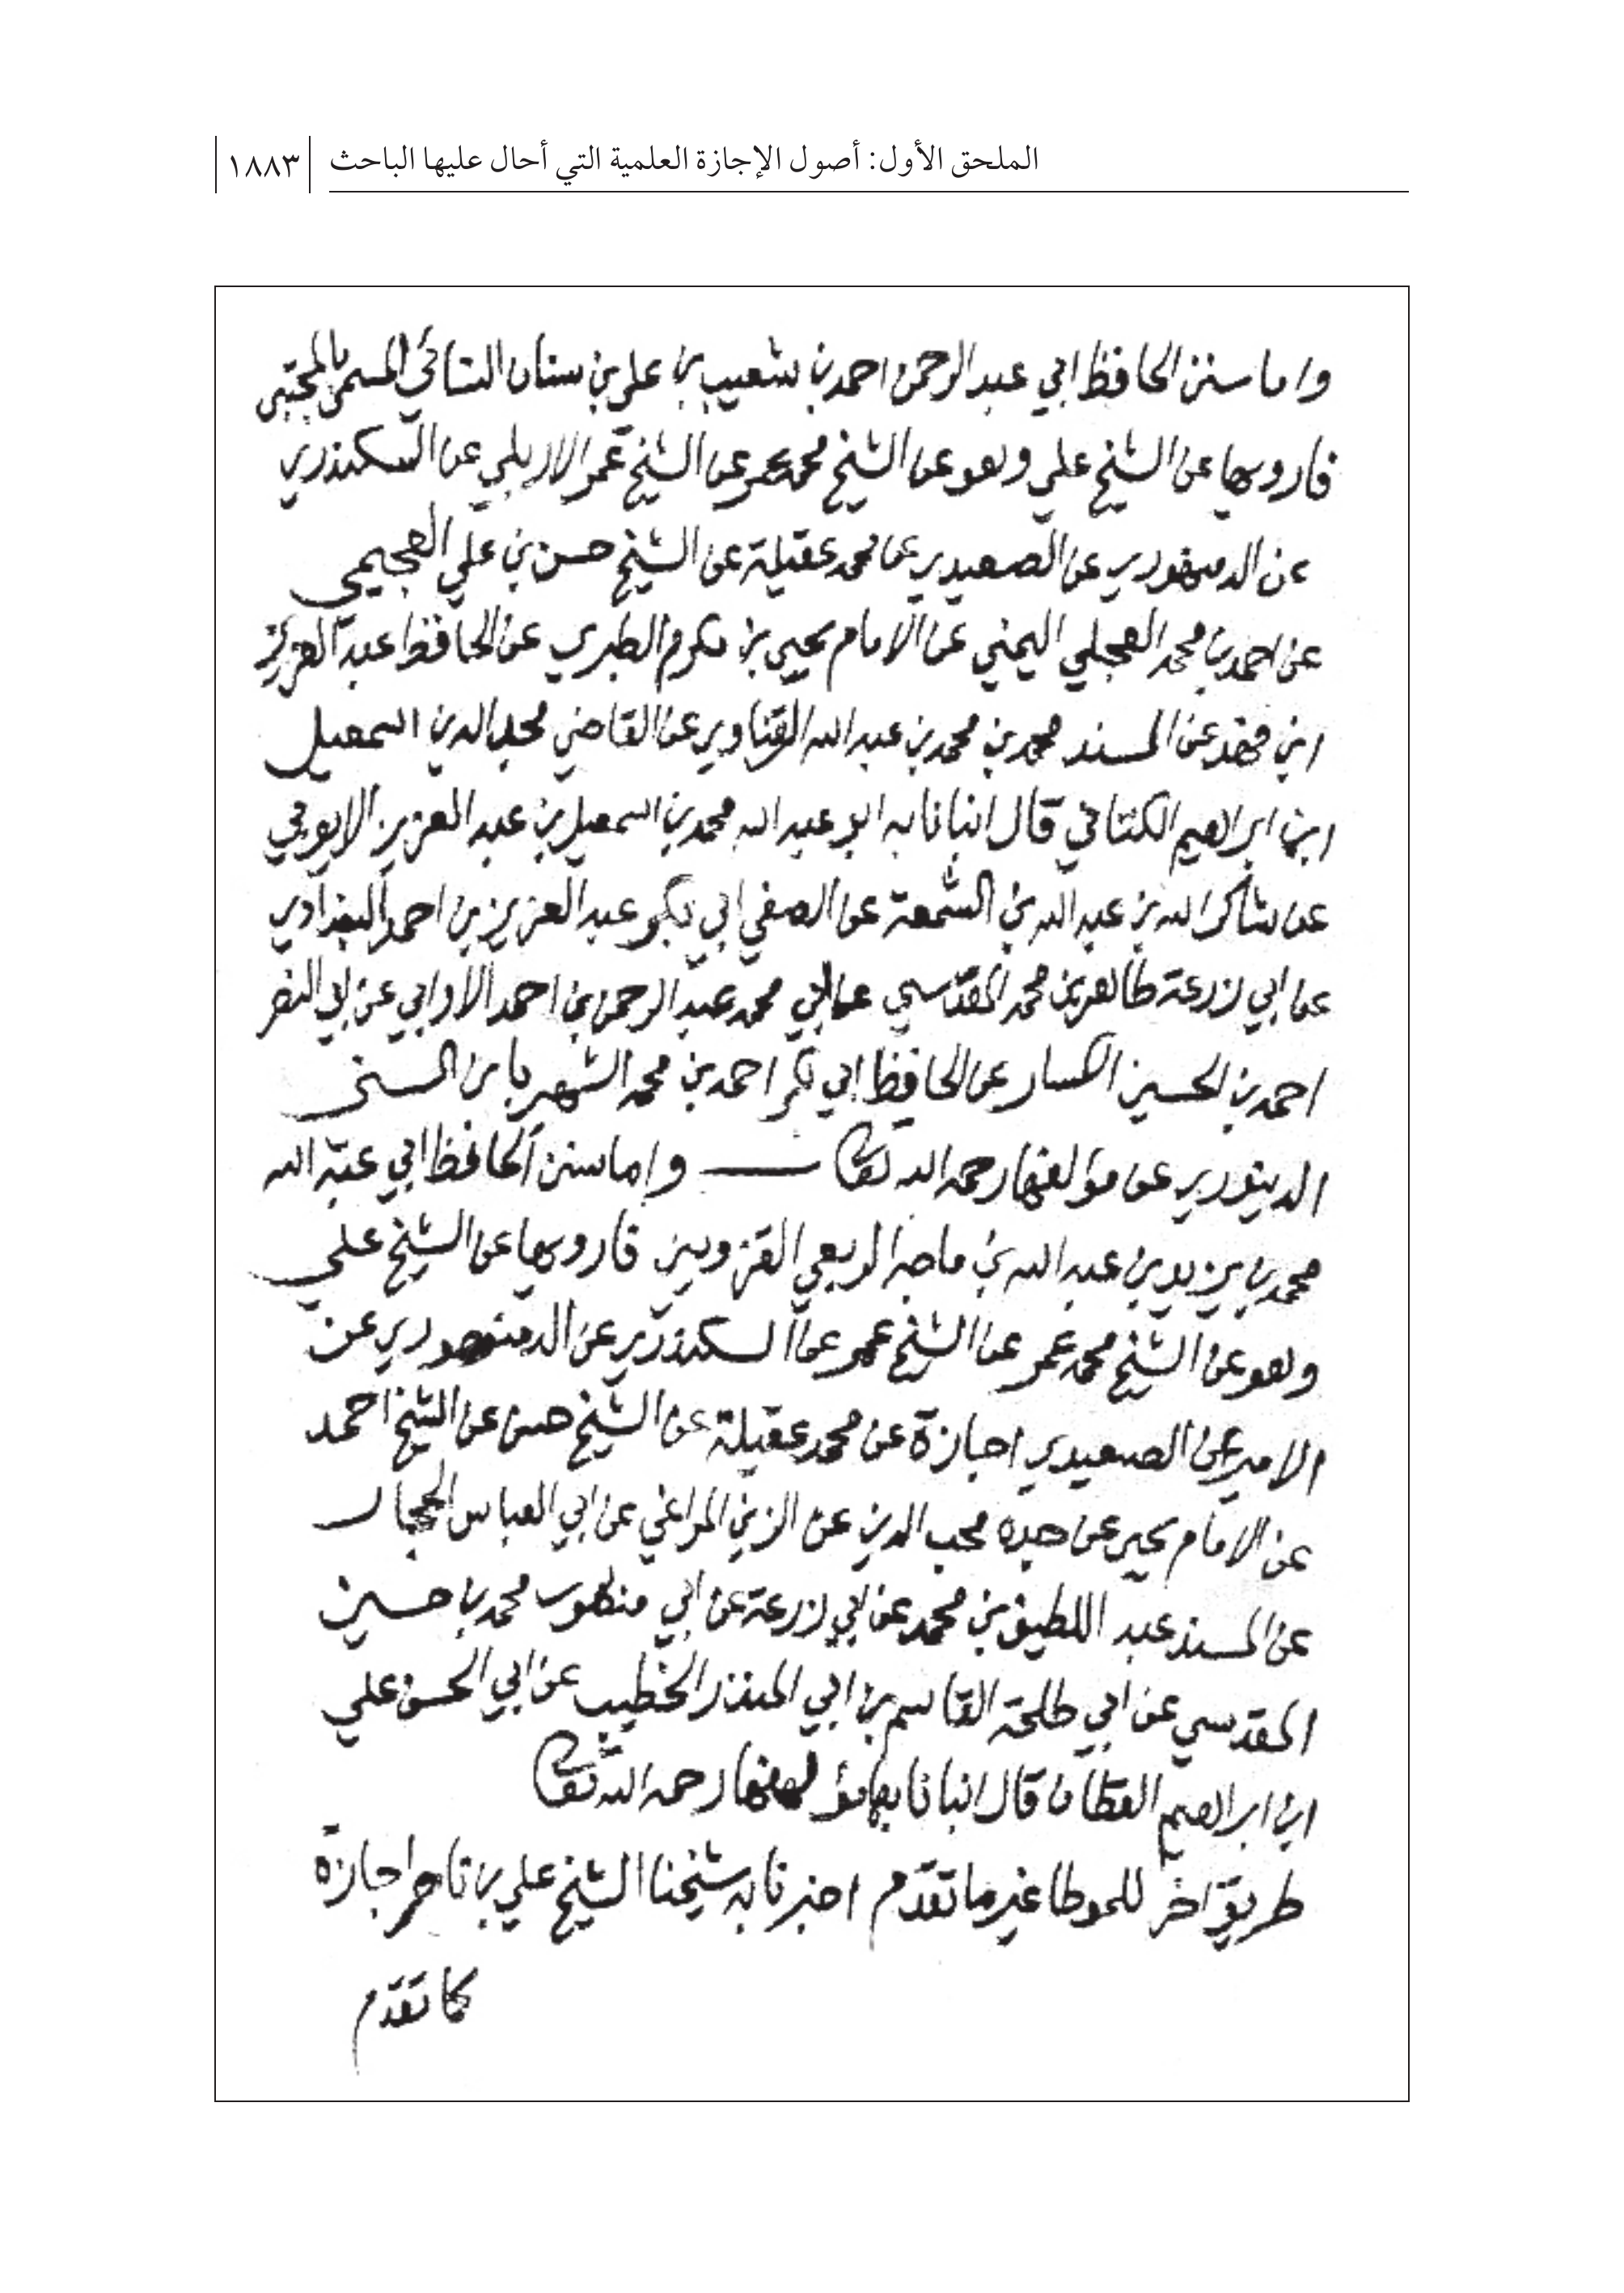 الملحق الأول: أصول الإجازة العلمية التي أحال عليها الباحث ١٨٨٣
واما سنن الحافظ ابي عبد الرحمن احمد بن شعيب بن علي بن سنان النسائي المسمى بالمجتبى
فارويها عن الشيخ علي وهو عن الشيخ محمد عمر عن الشيخ عمر الاربلي عن السكندري
عن الدمنهوري عن الصعيدي عن محمد عقيلة عن الشيخ حسن بن علي العجيمي
عن احمد بن محمد العجلي اليمني عن الامام يحيى بن مكرم الطبري عن الحافظ عبد العزيز
ابن فهد عن المسند محمد بن محمد بن عبد الله عن القاضي مجد الدين اسمعيل
ابن ابراهيم الكناني قال انبانا به ابو عبد الله محمد بن اسمعيل بن عبد العزيز الايوبي
عن شاكر الله بن عبد الله بن الشمعة عن الصفي ابي بكر عبد العزيز بن احمد البغدادي
عن ابي زرعة طاهر بن محمد المقدسي عن ابي محمد عبد الرحمن بن احمد عن ابي النصر
احمد بن الحسين الكسار عن الحافظ ابي بكر احمد بن محمد الشهير بابن السني
الدينوري عن مؤلفها رحمه الله تعالى واما سنن الحافظ ابي عبد الله
محمد بن يزيد بن عبد الله بن ماجه الربعي القزويني فارويها عن الشيخ علي
وهو عن الشيخ محمد عمر عن الشيخ عمر عن السكندري عن الدمنهوري عن
الامير عن الصعيدي اجازة عن محمد عقيلة عن الشيخ حسن عن الشيخ احمد
عن الامام يحيى عن جده محب الدين عن الزين المراغي عن ابي العباس الحجار
عن المسند عبد اللطيف بن محمد عن ابي زرعة عن ابي منصور محمد بن حسين
المقدسي عن ابي طلحة القاسم بن ابي المنذر الخطيب عن ابي الحسن علي
ابن ابراهيم القطان قال انبانا بها مؤلفها رحمه الله تعالى
طريق اخر للموطا غير ما تقدم اخبرنا به شيخنا الشيخ علي بن ناصر اجازة
كما تقدم